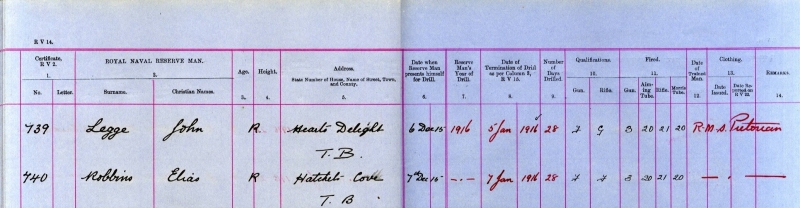 R V 14.
Certificate. R V 2. ROYAL NAVAL RESERVE MAN. Age. Height. Address. State Number of House, Name of Street, Town, and County. Date when Reserve Man presents himself for Drill. Reserve Man's Year of Drill. Date of Termination of Drill as per Column 8, R V 15. Number of Days Drilled. Qualifications. Fired. Date of Trained Man. Clothing. REMARKS.
1. 2. 3. 4. 5. 6. 7. 8. 9. 10. 11. 12. 13. 14.
No. Letter. Surname. Christian Names. Gun. Rifle. Gun. Aiming Tube. Rifle. Morris Tube. Date Issued.
739 Legge John R Hearts Delight 6 Dec 15 1916 5 Jan 1916 28 7 G 3 20 21 20 R.M.S. Pretorian
T. B.
740 Robbins Elias R Hatchet Cove 7th Dec 15 -.- 7 Jan 1916 28 7 7 3 20 21 20
T. B